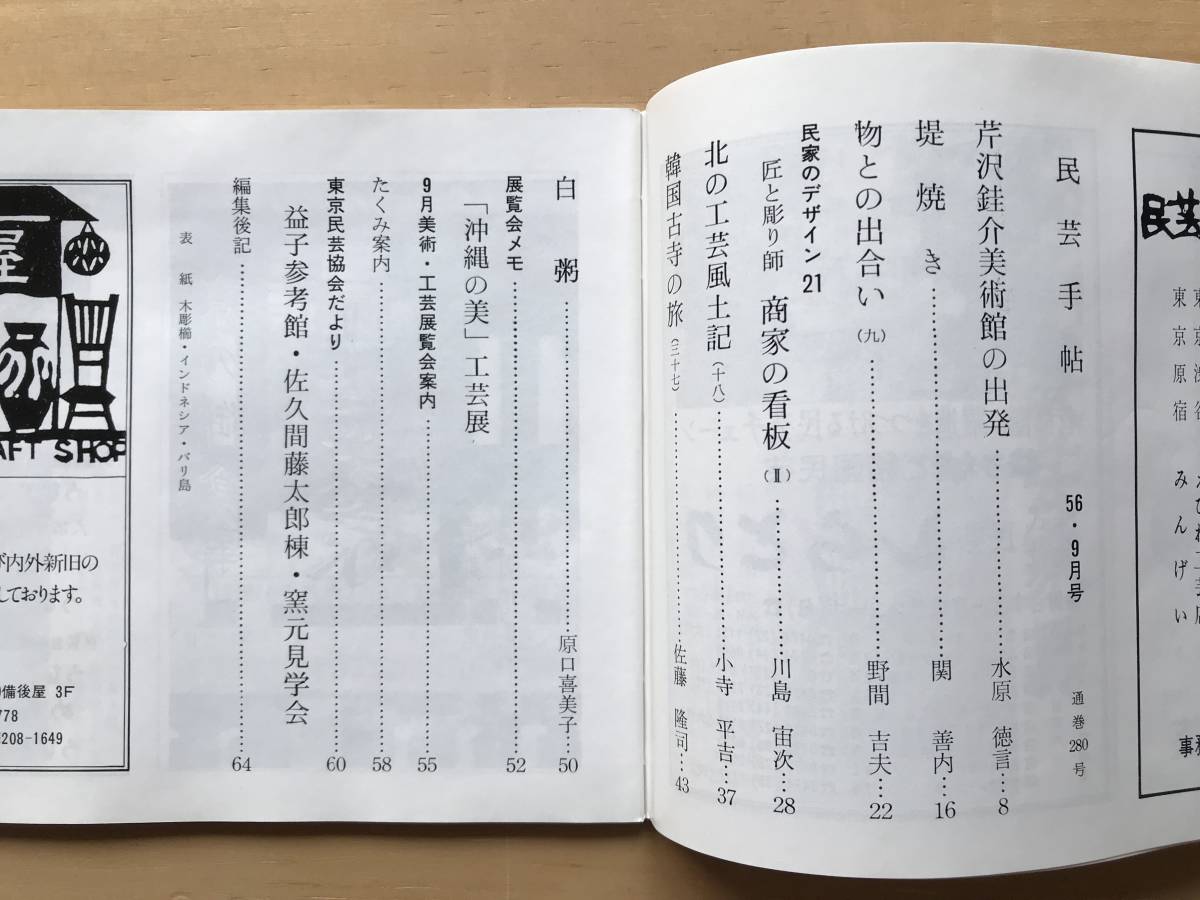 民芸手帖 56・9月号 通巻280号
芹沢銈介美術館の出発……水原徳言…8
堤焼き……関善内…16
物との出合い(九)……野間吉夫…22
民家のデザイン21
匠と彫り師 商家の看板(Ⅱ)……川島宙次…28
北の工芸風土記(十八)……小寺平吉…37
韓国古寺の旅(三十七)……佐藤隆司…43
白粥……原口喜美子…50
展覧会メモ……52
「沖縄の美」工芸展
9月美術・工芸展覧会案内……55
たくみ案内……58
東京民芸協会だより……60
益子参考館・佐久間藤太郎棟・窯元見学会
編集後記……64
表紙 木彫櫛・インドネシア・バリ島
民芸
東京原宿 みんげい
事務
屋
AFT SHOP
内外新旧の
しております。
備後屋 3F
778
208-1649